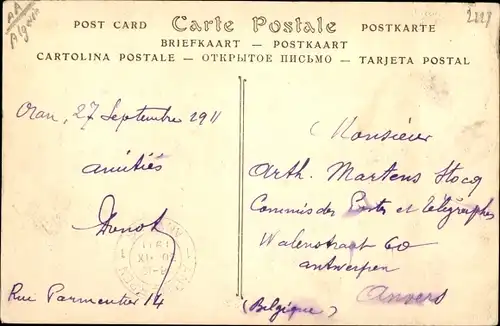 AA
Algérie
2227
POST CARD Carte Postale POSTKARTE
BRIEFKAART — POSTKAART
CARTOLINA POSTALE — ОТКРЫТОЕ ПИСЬМО — TARJETA POSTAL
Oran, 27 Septembre 1911
amitiés
Rue Parmentier 14
Monsieur
Arth. Martens Stocq
Commis des Postes et Télégraphes
Walenstraat 60
antwerpen
Anvers
(Belgique)
1911